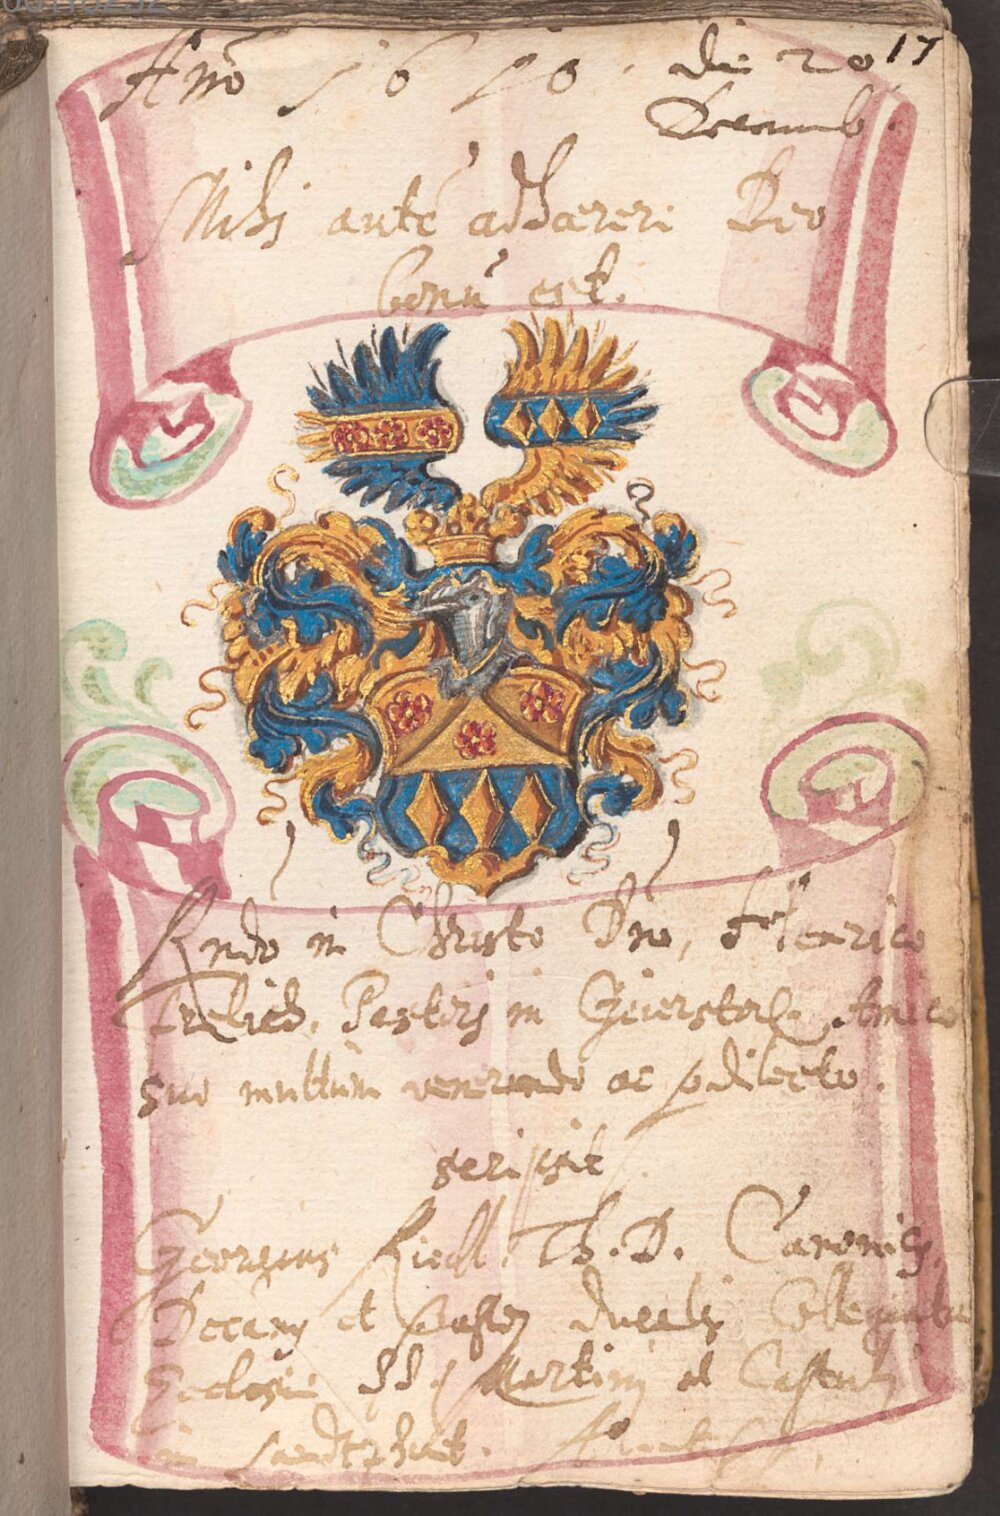 Anno 1650. die 20 17
Decemb.
Mihi autē adhaerere Deo
bonū est.
Rndo in Christo Dno, Henrico
Pastori in Amico
suo multum venerando ac pdilecto.
scripsit
Georgius Riedl. Th. D. Canonicus,
Decanus et ducalis Collegiatae
Ecclesiae SS. Martini et Castuli
in Landtshuet.